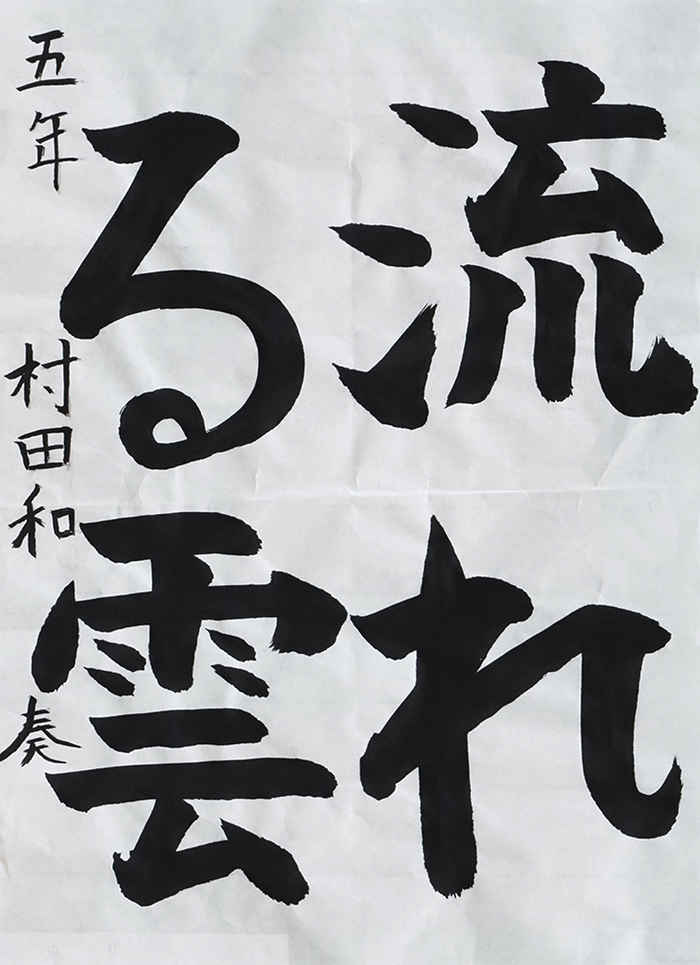 流れ
る雲
五年 村田和奏